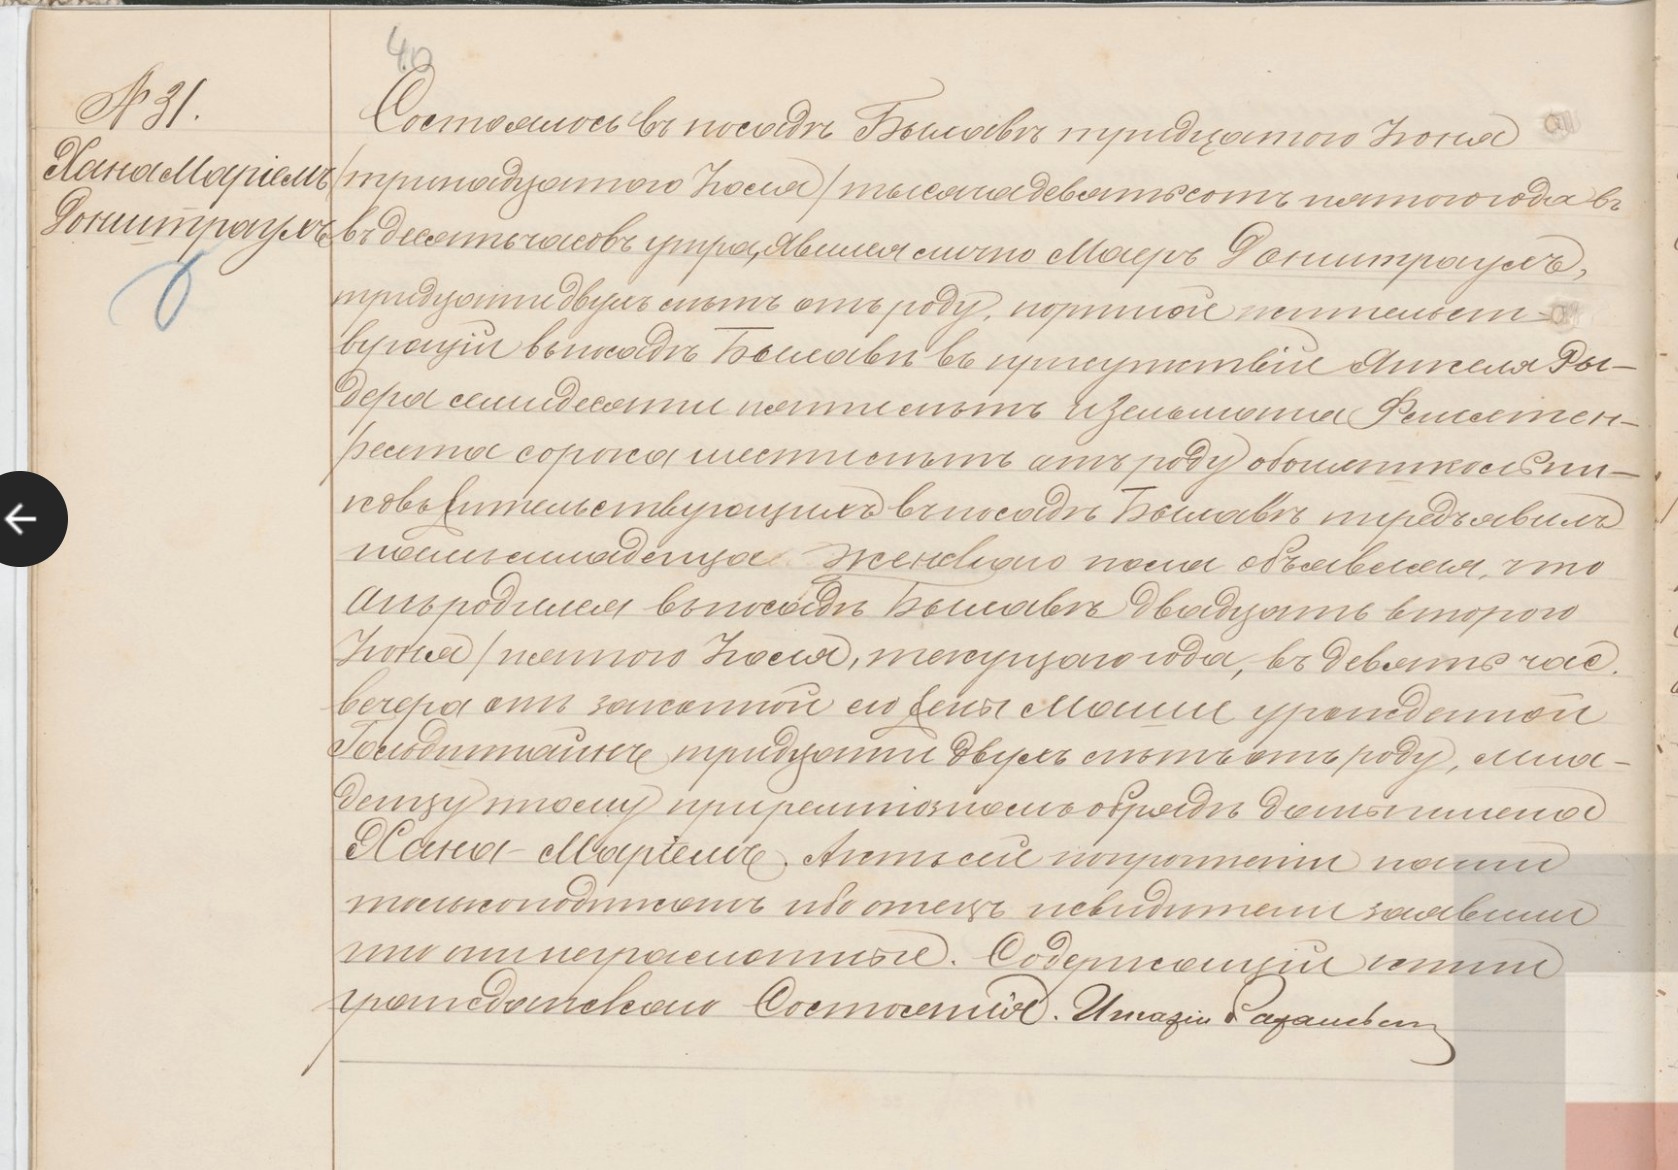 40
№ 31.
Хана Маріемъ
Донштраухъ
Состоялось въ посадѣ Былавѣ тридцатого Іюня
/тринадцатого Іюля/ тысяча девятьсотъ пятого года въ
въ десять часовъ утра, явился лично Маеръ Донштраухъ,
тридцати двухъ лѣтъ отъ роду, портной жительст-
вующій въ посадѣ Былавѣ въ присутствіи Анкеля Ры-
дера семидесяти пяти лѣтъ и Зельмана
сорока шести лѣтъ отъ роду обоихъ школьни-
ковъ жительствующихъ въ посадѣ Былавѣ и предъявилъ
намъ младенца женскаго пола объявляя, что
онъ родился въ посадѣ Былавѣ двадцать второго
Іюня /пятого Іюля, текущаго года, въ девять час.
вечера отъ законной его жены Маши урожденной
Гольдштайнъ тридцати двухъ лѣтъ отъ роду, мла-
денцу тому при религіозномъ обрядѣ дано имена
Хана-Маріемъ. Актъ сей по прочтеніи нами
только подписанъ ибо отецъ и свидѣтели заявили
что они неграмотные. Содержащій книги
гражданскаго Состоянія.